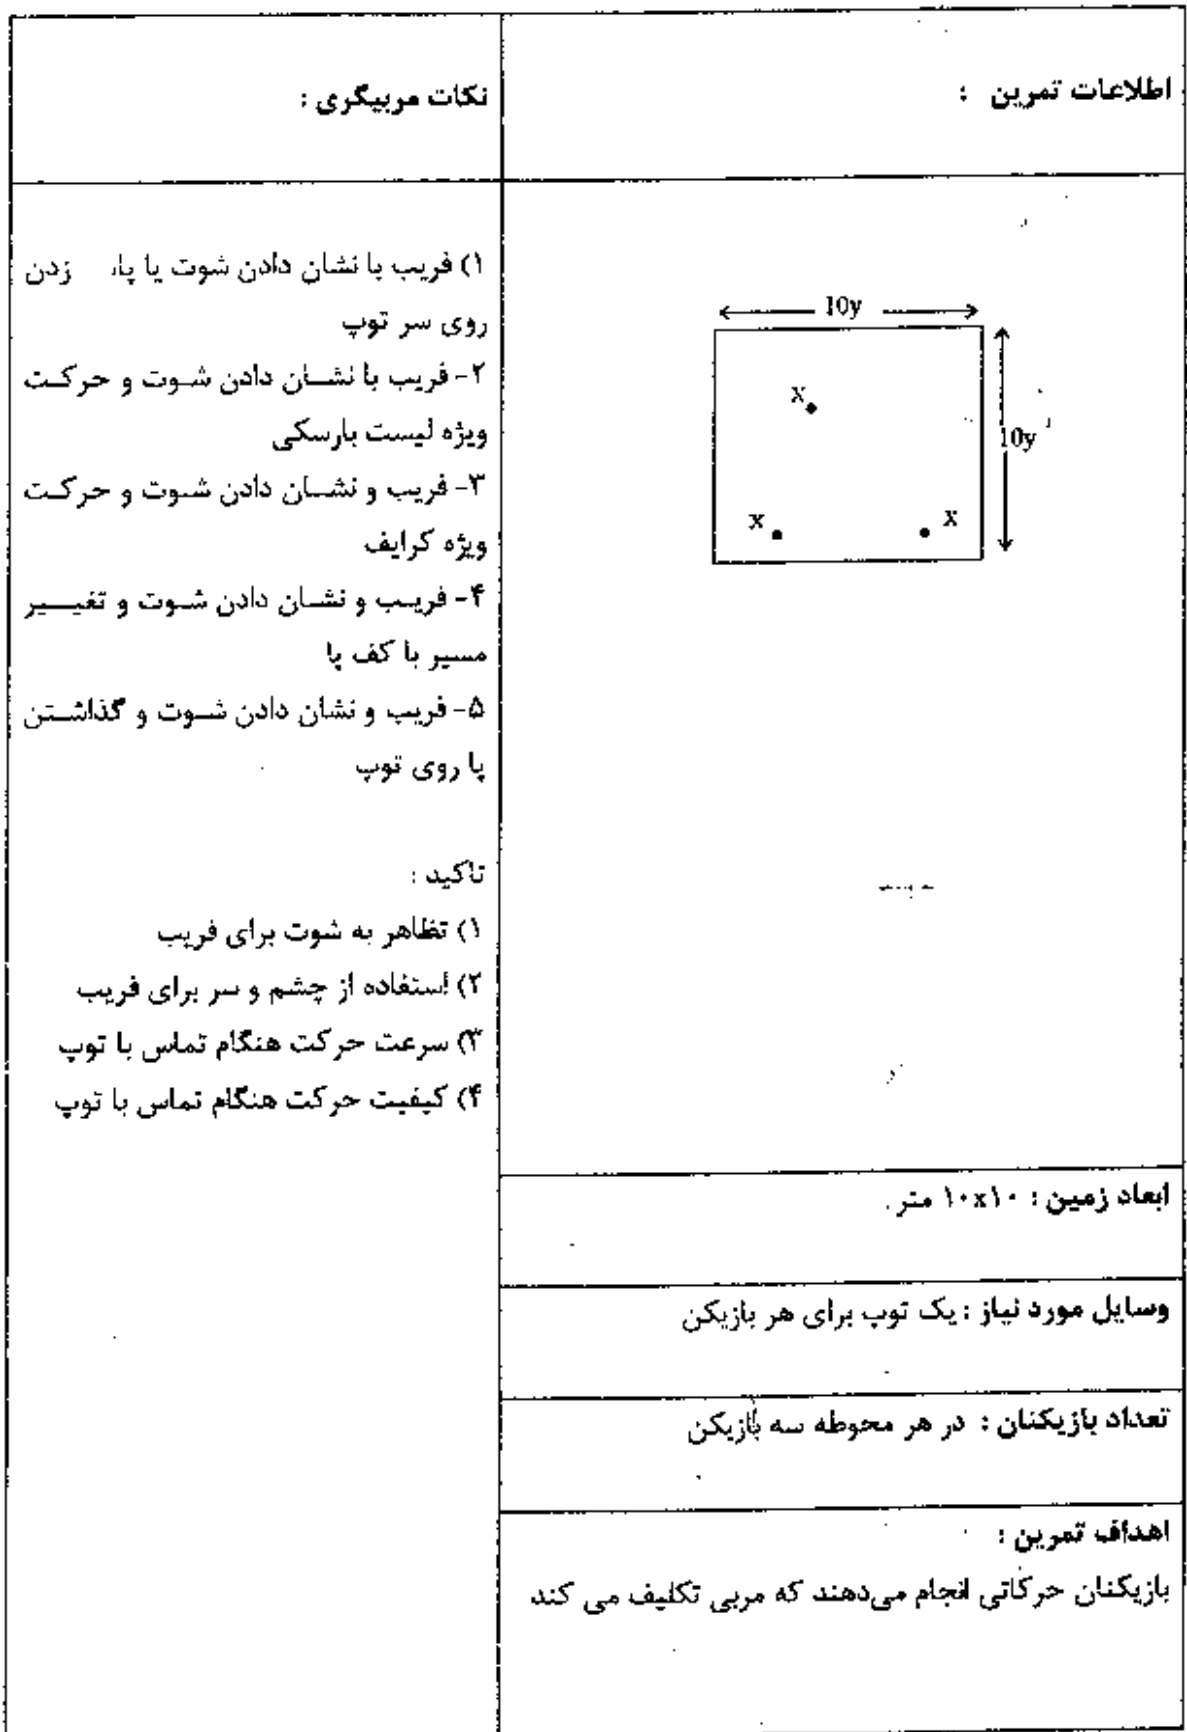 اطلاعات تمرین :
10y
x
10y
x
x
ابعاد زمین : ۱۰x۱۰ متر .
وسایل مورد نیاز : یک توپ برای هر بازیکن
تعداد بازیکنان : در هر محوطه سه بازیکن
اهداف تمرین :
بازیکنان حرکاتی انجام می‌دهند که مربی تکلیف می کند
نکات مربیگری :
۱) فریب با نشان دادن شوت یا پا زدن
روی سر توپ
۲- فریب با نشان دادن شوت و حرکت
ویژه لیست بارسکی
۳- فریب و نشان دادن شوت و حرکت
ویژه کرایف
۴- فریب و نشان دادن شوت و تغییر
مسیر با کف پا
۵- فریب و نشان دادن شوت و گذاشتن
پا روی توپ
تاکید :
۱) تظاهر به شوت برای فریب
۲) استفاده از چشم و سر برای فریب
۳) سرعت حرکت هنگام تماس با توپ
۴) کیفیت حرکت هنگام تماس با توپ